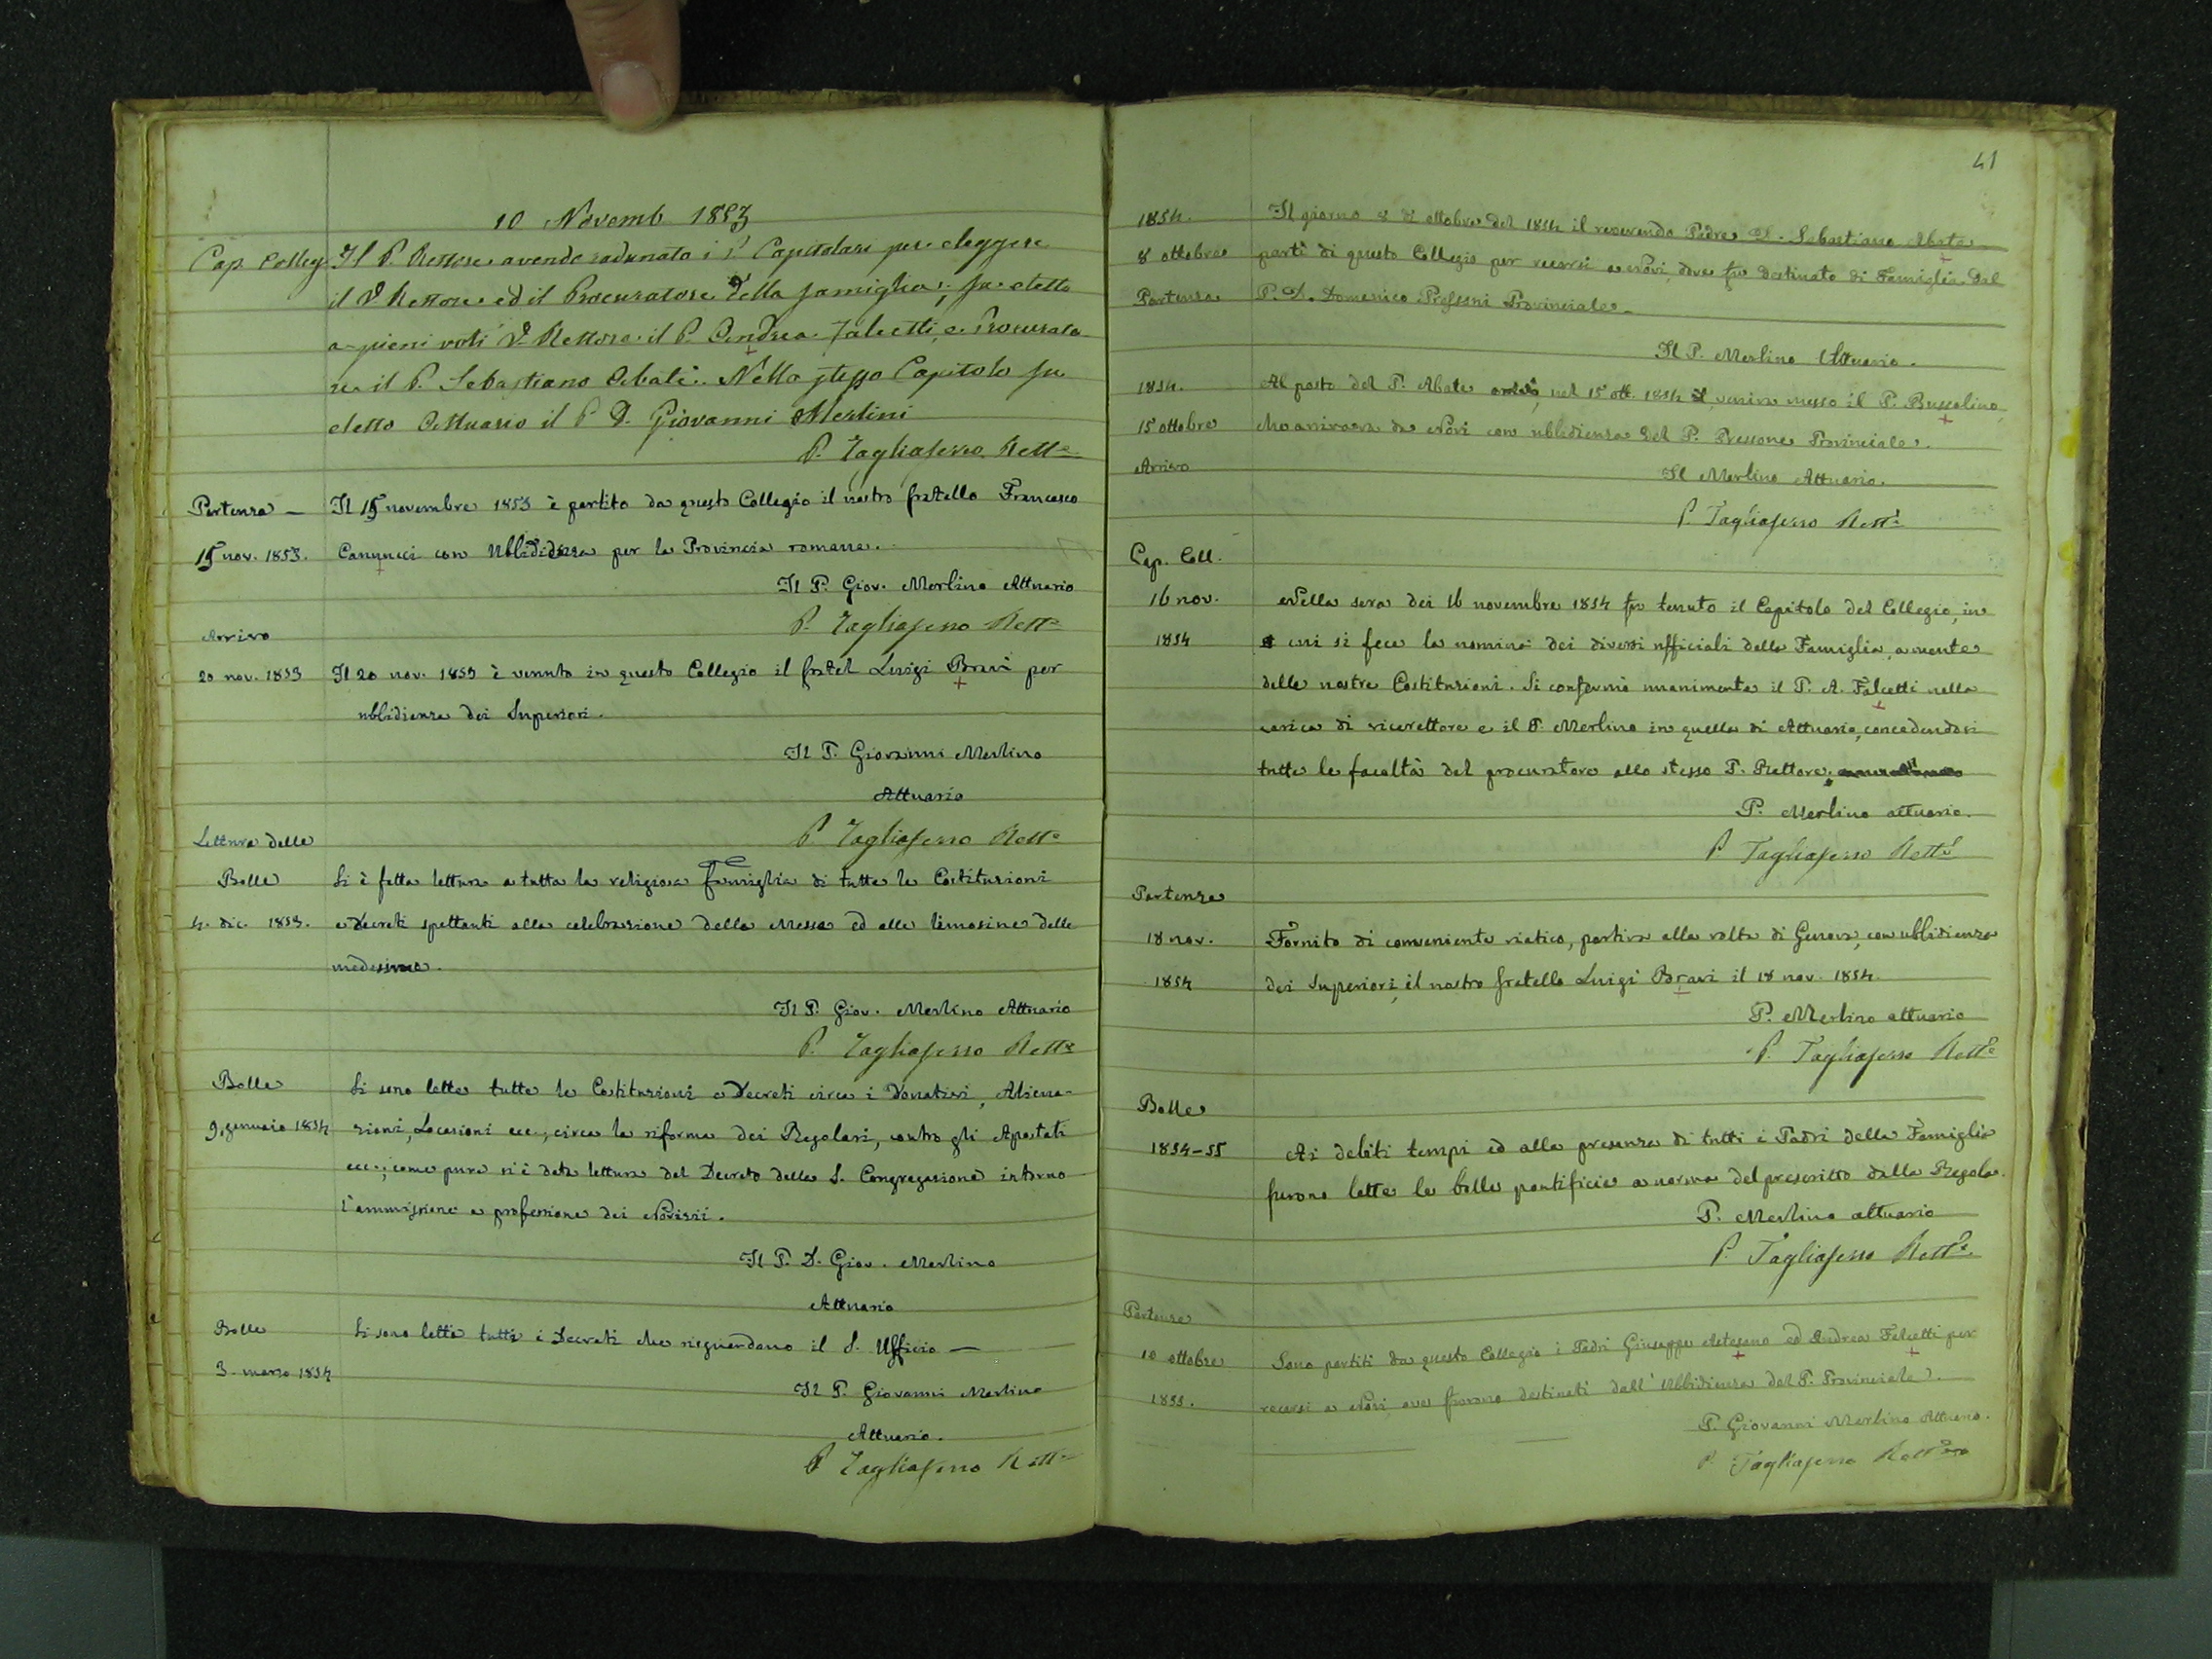 10 Novemb. 1853
Cap. Colleg. Il P. Rettore avendo radunato i PP. Capitolari per eleggere
il V. Rettore ed il Procuratore della famiglia; fu eletto
a pieni voti V. Rettore il P. Andrea Falcetti, e Procurato
re il P. Sebastiano Abati. Nello stesso Capitolo fu
eletto Attuario il P. D. Giovanni Merlini
P. Tagliaferro Rett.e
Partenza — Il 15 novembre 1853 è partito da questo Collegio il nostro fratello Francesco
15 nov. 1853. Canucci con Ubbidienza per la Provincia romana.
Il P. Giov. Merlino Attuario
P. Tagliaferro Rett.e
Arrivo
20 nov. 1853 Il 20 nov. 1853 è venuto in questo Collegio il fratel Luigi Bravi per
ubbidienza dei Superiori.
Il P. Giovanni Merlino
Attuario
P. Tagliaferro Rett.e
Lettura delle
Bolle Si è fatta lettura a tutta la religiosa famiglia di tutte le Costituzioni
4. dic. 1853. e Decreti spettanti alla celebrazione della Messa ed alle limosine delle
medesime.
Il P. Giov. Merlino Attuario
P. Tagliaferro Rett.e
Bolle Si sono lette tutte le Costituzioni e Decreti circa i Donativi, Aliena-
9. gennaio 1854 zioni, Locazioni ecc., circa la riforma dei Regolari, contro gli Apostati
ecc.; come pure si è data lettura del Decreto della S. Congregazione intorno
l'ammissione e professione dei Novizii.
Il P. D. Giov. Merlino
Attuario
Bolle Si sono letti tutti i Decreti che risguardano il S. Ufficio —
3. marzo 1854
Il P. Giovanni Merlino
Attuario.
P. Tagliaferro Rett.e
41
1854. Il giorno 8 di ottobre del 1854 il reverendo Padre D. Sebastiano Abate
8 ottobre partì di questo Collegio per recarsi a Novi, dove fu destinato di Famiglia dal
Partenza P. D. Domenico Provinciale.
Il P. Merlino Attuario.
1854. Al posto del P. Abate nel 15 ott. 1854 veniva messo il P. Bussolino,
15 ottobre che arrivava da Novi con ubbidienza del P. Pressone Provinciale.
Arrivo
Il Merlino Attuario.
P. Tagliaferro Rett.e
Cap. Coll.
16 nov. Nella sera dei 16 novembre 1854 fu tenuto il Capitolo del Collegio, in
1854 cui si fece la nomina dei diversi ufficiali della Famiglia, a mente
delle nostre Costituzioni. Si confermò unanimente il P. A. Falcetti nella
carica di vicerettore e il P. Merlino in quella di Attuario, concedendosi
tutte le facoltà del procuratore allo stesso P. Rettore.
P. Merlino attuario.
P. Tagliaferro Rett.e
Partenza
18 nov. Fornito di conveniente viatico, partiva alla volta di Genova, con ubbidienza
1854 dei Superiori, il nostro fratello Luigi Bravi il 18 nov. 1854.
P. Merlino attuario
P. Tagliaferro Rett.e
Bolle
1854-55 Ai debiti tempi ed alla presenza di tutti i Padri della Famiglia
furono lette le bolle pontificie a norma del prescritto dalla Regola.
P. Merlino attuario
P. Tagliaferro Rett.e
Partenza
10 ottobre Sono partiti da questo Collegio i Padri Giuseppe ed Andrea Falcetti per
1855. recarsi a Novi ove furono destinati dall'Ubbidienza del P. Provinciale.
P. Giovanni Merlino Attuario.
P. Tagliaferro Rett.e